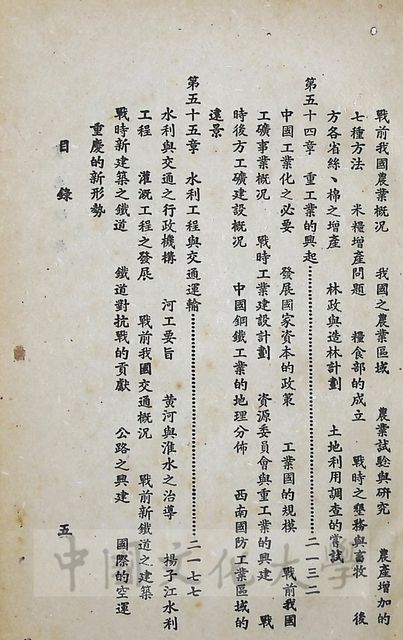 戰前我國農業概況　我國之農業區域　農業試驗與研究　農產增加的
七種方法　米糧增產問題　糧食部的成立　戰時之墾務與畜牧　後
方各省絲、棉之增產　林政與造林計劃　土地利用調查的嘗試
第五十四章　重工業的興起……………………二一三二
中國工業化之必要　發展國家資本的政策　工業國的規模　戰前我國
工礦事業概況　戰時工業建設計劃　資源委員會與重工業的興建　戰
時後方工礦建設概況　中國鋼鐵工業的地理分佈　西南國防工業區域的
遠景
第五十五章　水利工程與交通運輸……………………二一七七
水利與交通之行政機構　河工要旨　黃河與淮水之治導　揚子江水利
工程　灌溉工程之發展　戰前我國交通概況　戰前新鐵道之建築
戰時新建築之鐵道　鐵道對抗戰的貢獻　公路之興建　國際的空運
重慶的新形勢
目錄　五
中國文化大學